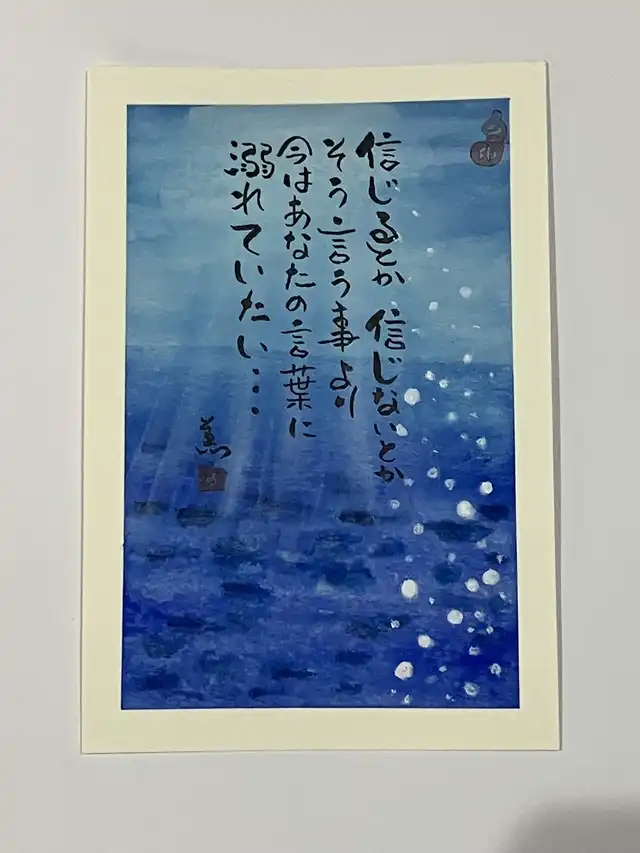 信じるとか 信じないとか
そう言う事より
今はあなたの言葉に
溺れていたい・・・
薫